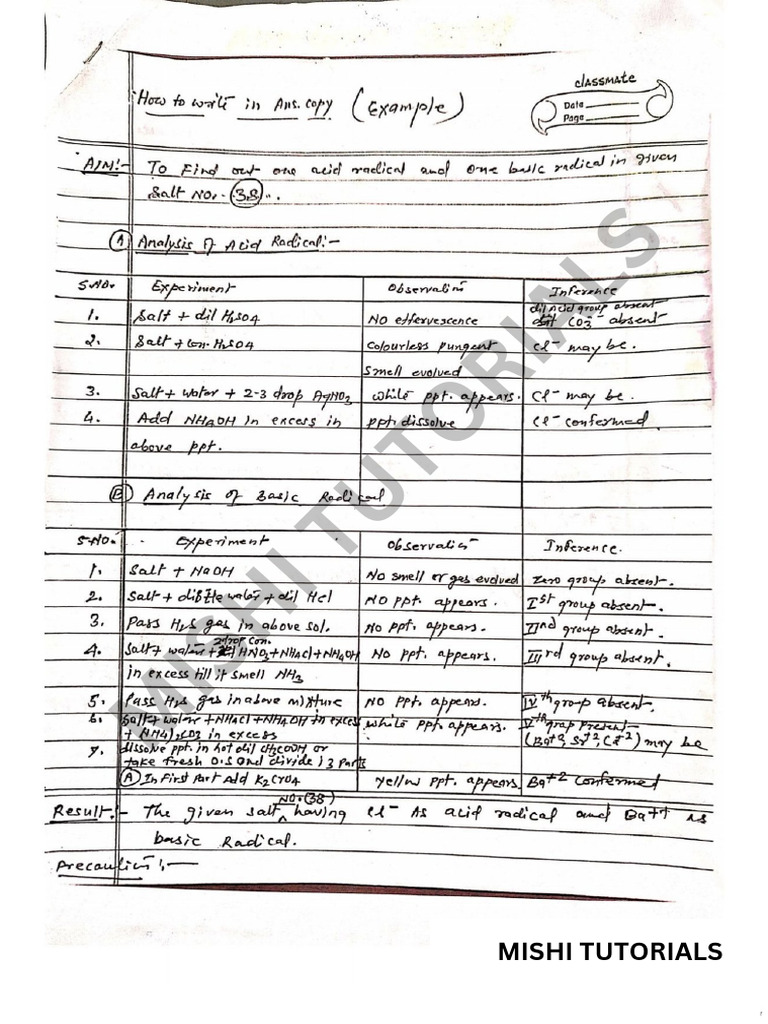 classmate
Date
Page
How to write in Ans. copy (Example)
AIM:- To Find out one acid radical and one basic radical in given
Salt NO. 38.
(A) Analysis of Acid Radical:-
S.NO. Experiment Observation Inference
1. Salt + dil H2SO4 NO effervescence dil Acid group absent
CO3-- absent
2. Salt + con. H2SO4 Colourless pungent Cl- may be.
smell evolved
3. Salt + water + 2-3 drop AgNO3 White ppt. appears. Cl- may be.
4. Add NH4OH in excess in ppt. dissolve Cl- confermed.
above ppt.
(B) Analysis of Basic Radical
S.NO. Experiment Observation Inference.
1. Salt + NaOH No smell or gas evolved Zero group absent.
2. Salt + distille water + dil Hcl NO ppt. appears. Ist group absent.
3. Pass H2S gas in above sol. No ppt. appears. IInd group absent.
2 drop con.
4. Salt + water + HNO3 + NH4Cl + NH4OH No ppt. appears. IIIrd group absent.
in excess till it smell NH3
5. Pass H2S gas in above mixture NO ppt. appears. IVth group absent.
6. Salt + water + NH4Cl + NH4OH in excess White ppt. appears. Vth group Present
+ (NH4)2CO3 in excess (Ba+2, Sr+2, Ca+2) may be
7. dissolve ppt. in hot dil CH3COOH or
take fresh O.S and divide i 3 Parts
(A) In First Part Add K2CrO4 Yellow ppt. appears Ba+2 confermed
NO.(38)
Result:- The given salt having Cl- As acid radical and Ba++ as
basic Radical.
Precaution:-
MISHI TUTORIALS
MISHI TUTORIALS